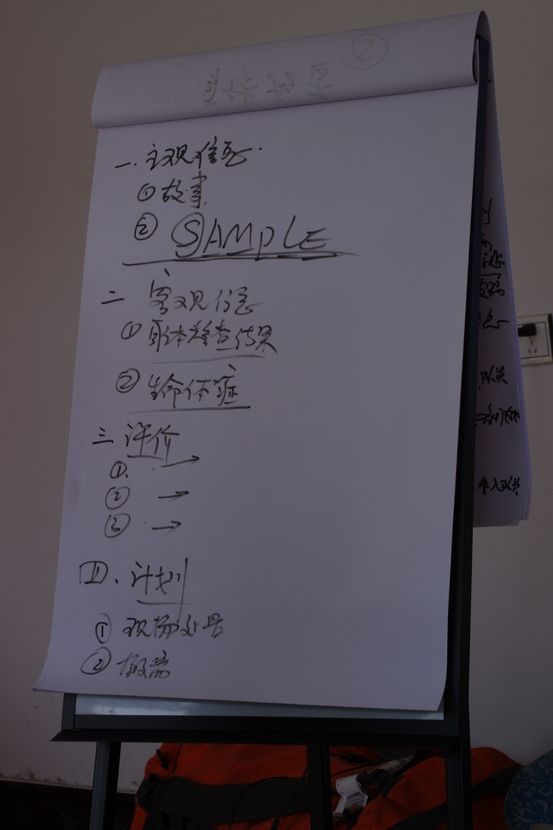 一. 主观信息.
① 故事
② SAMPLE
二 客观信息
① 身体检查结果
② 生命体症
三 评价
①. →
② →
③ →
四. 计划
① 现场处置
②